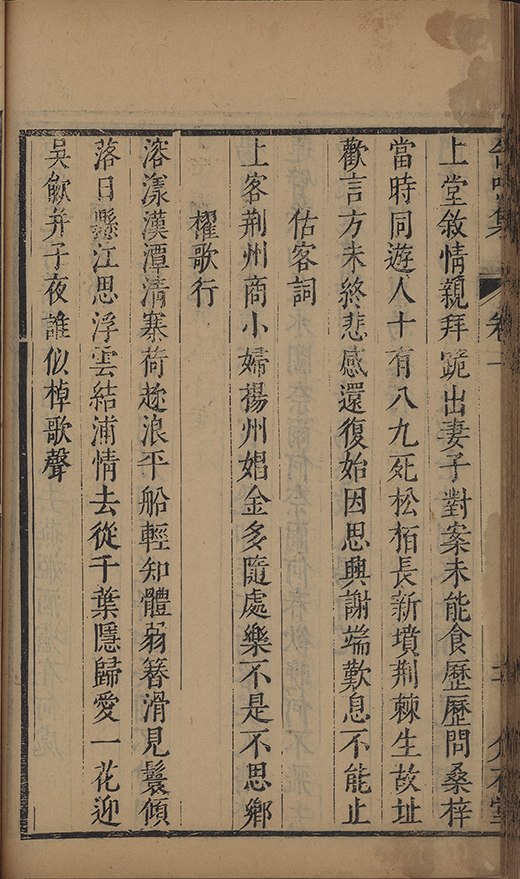 上堂敘情親拜跪出妻子對案未能食歷歷問桑梓
當時同遊人十有八九死松栢長新墳荆棘生故址
歡言方未終悲感還復始因思興謝端歎息不能止
估客詞
上客荆州商小婦揚州娼金多隨處樂不是不思鄉
櫂歌行
溶漾漢潭清寨荷趂浪平船輕知體弱簪滑見鬟傾
落日懸江思浮雲結浦情去從千葉隱歸愛一花迎
吳歈并子夜誰似棹歌聲